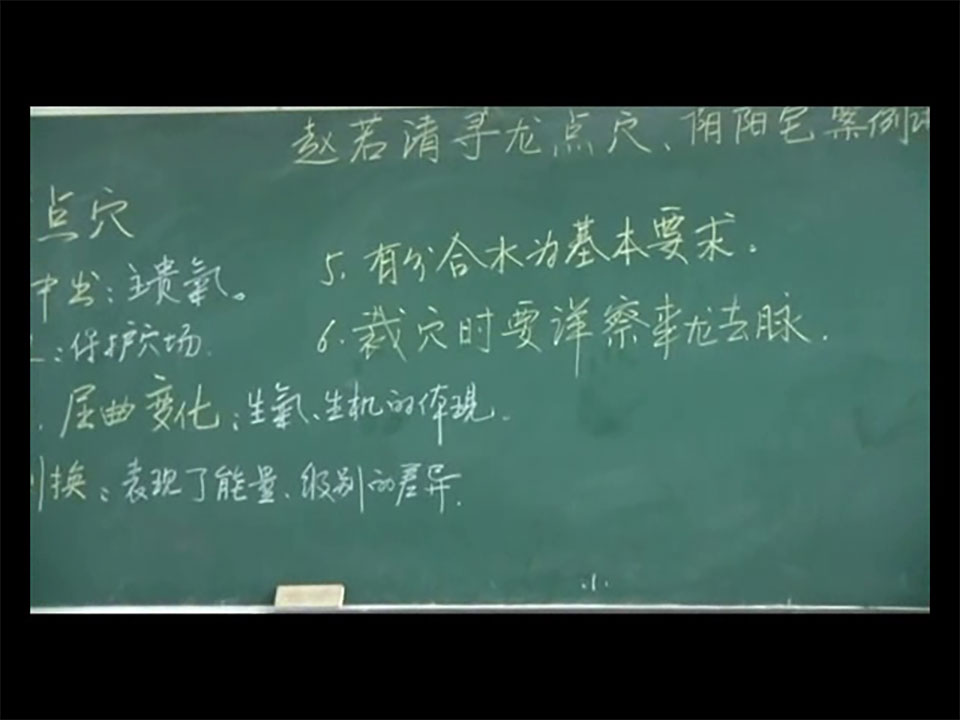 赵若清寻龙点穴、阴阳宅案例
点穴
中出：主贵氣。
：保护穴场.
屈曲变化：生氣、生机的体现。
换：表现了能量、级别的差异.
5. 有分合水为基本要求。
6. 裁穴时要详察来龙去脉.